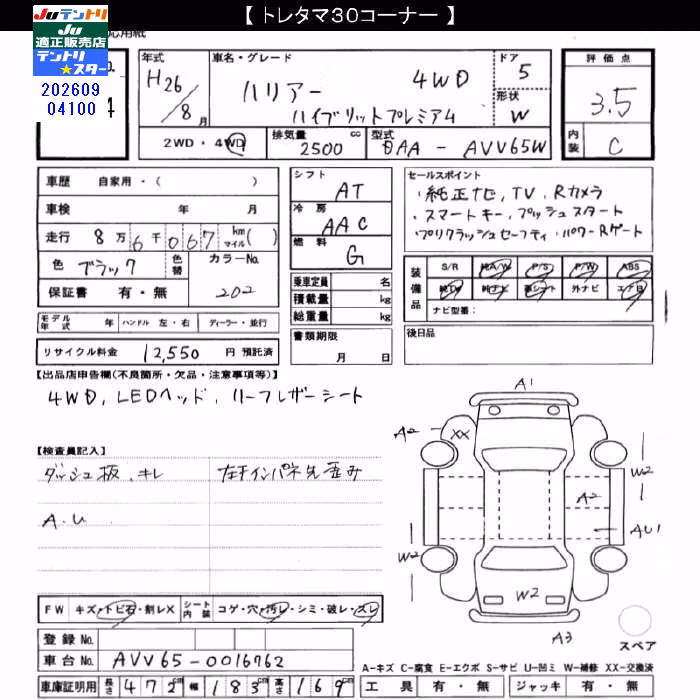 【 トレタマ30コーナー 】
Juテントリ
Ju
適正販売店
テントリ
★スター
202609
04100
応用紙
No.
年式 H26/8月
車名・グレード ハリアー 4WD
ハイブリットプレミアム
ドア 5
形状 W
評価点 3.5
内装 C
2WD・4WD
排気量 2500 cc
型式 DAA - AVV65W
車歴 自家用・( )
車検 年 月
走行 8万6千067 km マイル( )
色 ブラック 色替 カラーNo. 202
保証書 有・無
シフト AT
冷房 AAC
燃料 G
乗車定員 名
積載量 kg
総重量 kg
書類期限
月 日
セールスポイント
・純正ナビ, TV, Rカメラ
・スマートキー, プッシュスタート
・プリクラッシュセーフティ・パワーRゲート
装備品
S/R 純A/W P/S P/W ABS
純TV 純ナビ 革シート 外ナビ エアB
ナビ型番:
後日品
モデル年式 年 ハンドル 左・右 ディーラー・並行
リサイクル料金 12,550 円 預託済
【出品店申告欄(不良箇所・欠品・注意事項等)】
4WD, LEDヘッド, ハーフレザーシート
【検査員記入】
ダッシュ板、キレ
左チインパネ先歪み
A.U
A1
A2
XX
W2
A2
AU1
W2
W2
A3
スペア
FW キズ・トビ石・割レX シート内装 コゲ・穴・汚レ・シミ・破レ・スレ
登録No.
車台No. AVV65-0016762
A-キズ C-腐食 E-エクボ S-サビ U-凹ミ W-補修 XX-交換済
車庫証明用 長さ 472cm 幅 183cm 高さ 169cm
工具 有・無 ジャッキ 有・無